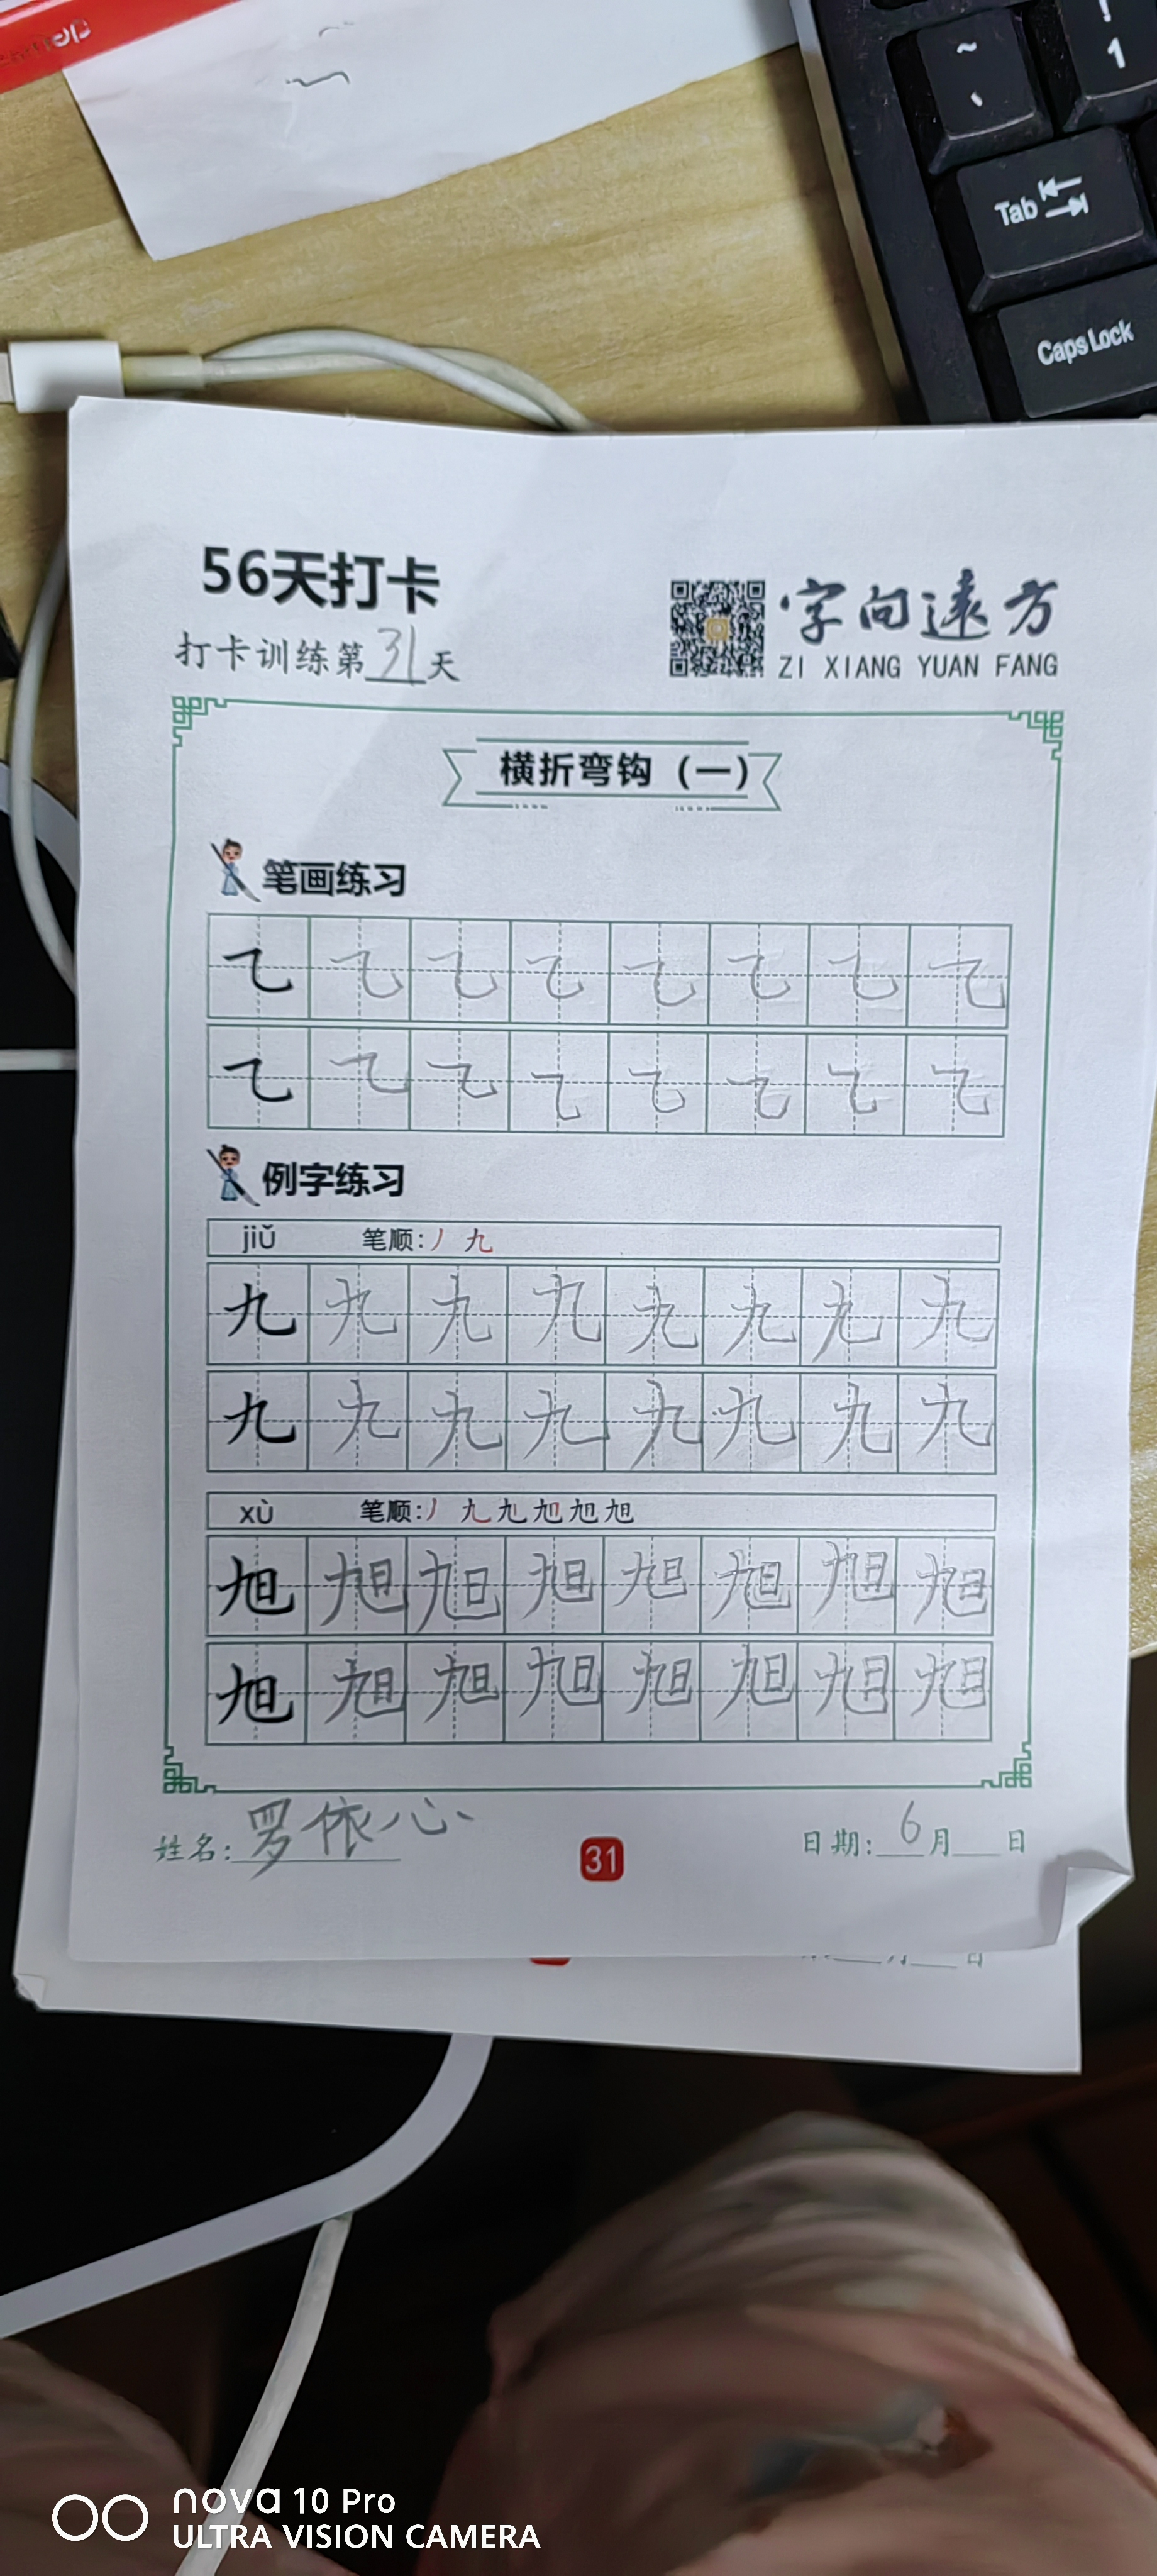 ~
、
!
1
Tab
Caps Lock
56天打卡
打卡训练第31天
字向遠方
ZI XIANG YUAN FANG
横折弯钩（一）
笔画练习
㇈ ㇈ ㇈ ㇈ ㇈ ㇈ ㇈ ㇈
㇈ ㇈ ㇈ ㇈ ㇈ ㇈ ㇈ ㇈
例字练习
jiǔ 笔顺:丿 九
九 九 九 九 九 九 九 九
九 九 九 九 九 九 九 九
xù 笔顺:丿 九 九 旭 旭 旭
旭 旭 旭 旭 旭 旭 旭 旭
旭 旭 旭 旭 旭 旭 旭 旭
姓名:罗依心
31
日期:6月 日
月 日
nova 10 Pro
ULTRA VISION CAMERA